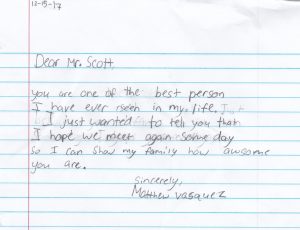 12-15-17
Dear Mr. Scott
you are one of the best person
I have ever seen in my life.
I just wanted to tell you that
I hope we meet again some day
so I can show my family how awsome
you are.
Sincerely,
Matthew Vasquez